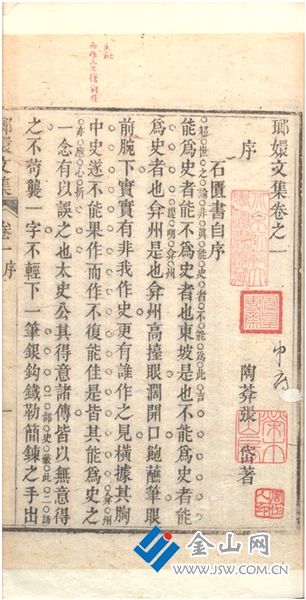 瑯嬛文集卷之一
序
陶菴張岱著
石匱書自序
超世之論非為能史者不能為此言
能為史者能不為史者也東坡是也不能為史者能
為史者也弇州是也弇州高擡眼濶開口飽蘸筆眼
前腕下實實有非我作史更有誰作之見橫據其胸
中史遂不能果作而作不復能佳是皆其能為史之
一念有以誤之也太史公其得意諸傳皆以無意得
之不苟襲一字不輕下一筆銀鈎鐵勒簡鍊之手出
瑯嬛文集
卷一
序
一
金山网
www.jsw.com.cn